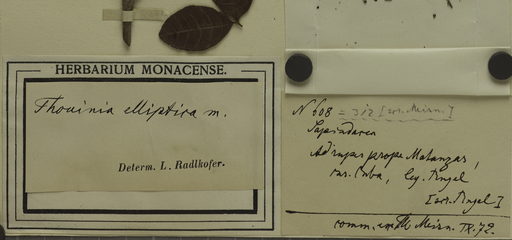 HERBARIUM MONACENSE.
Thouinia elliptica m.
Determ. L. Radlkofer.
N 608 = 312 [ ]
Sapindacea
Ad rupes prope Matanzas,
ins. Cuba, leg. Rugel
[ Rugel]
comm. Meisn. IX. 72.